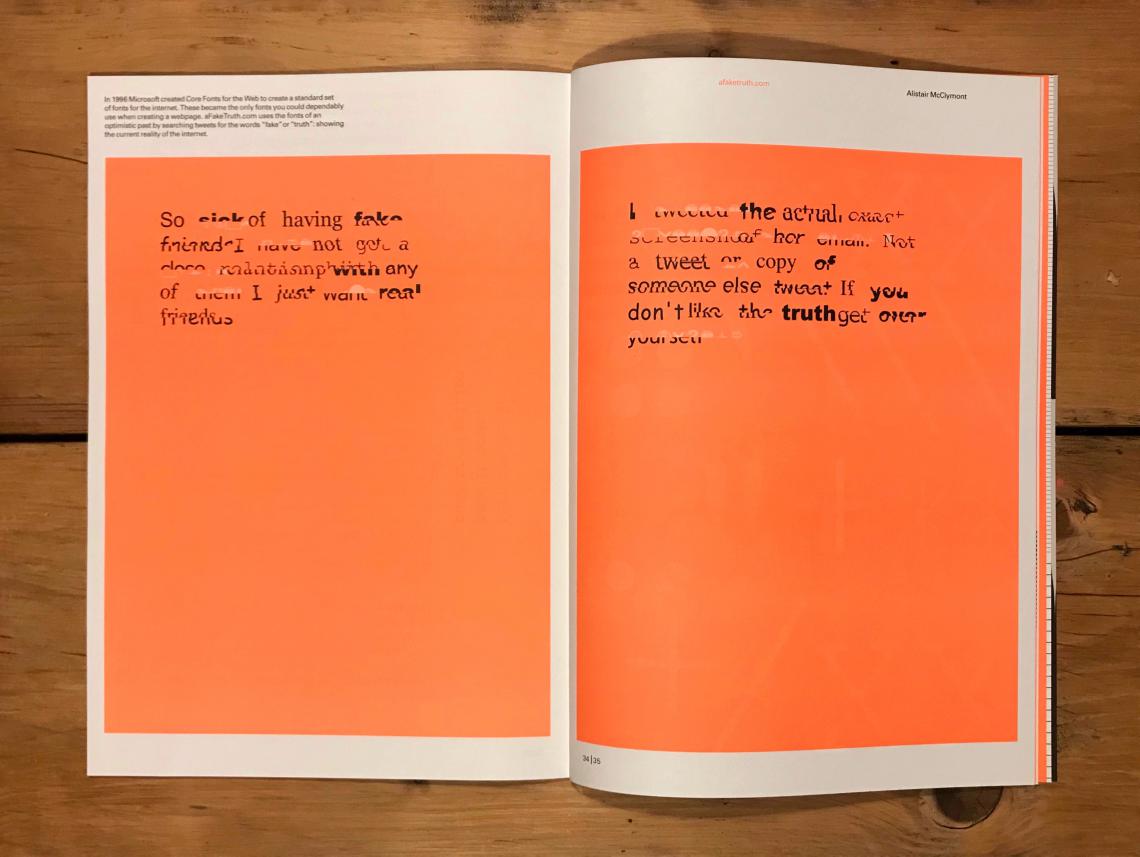 In 1996 Microsoft created Core Fonts for the Web to create a standard set
of fonts for the internet. These became the only fonts you could dependably
use when creating a webpage. aFakeTruth.com uses the fonts of an
optimistic past by searching tweets for the words "fake" or "truth": showing
the current reality of the internet.
So sick of having fake
friends I have not got a
close relationsp with any
of them I just want real
friends
afaketruth.com
Alistair McClymont
I tweeted the actual, exact
screenshot of her email. Not
a tweet or copy of
someone else tweet If you
don't like the truth get over
yourself
34|35